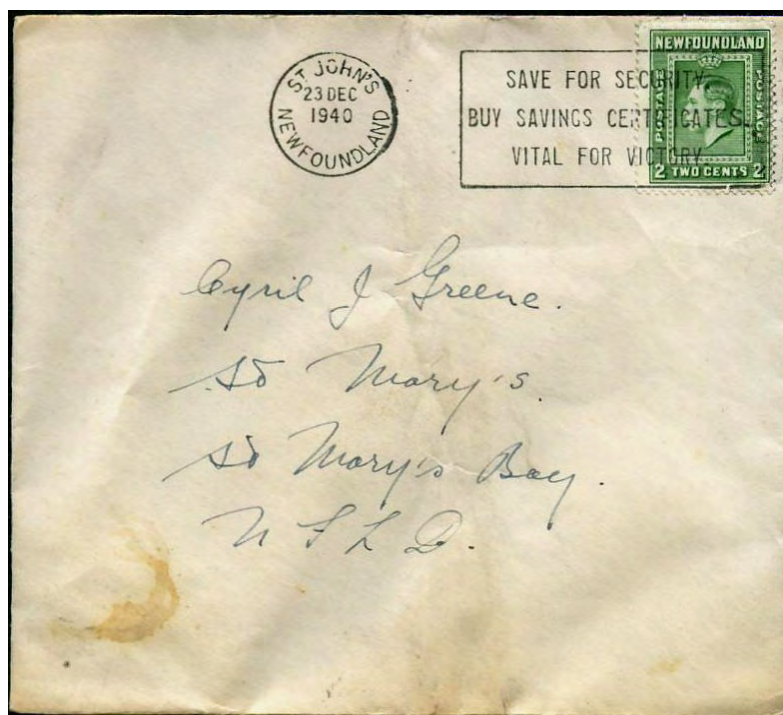 ST JOHN'S
23 DEC
1940
NEWFOUNDLAND
SAVE FOR SECURITY
BUY SAVINGS CERTIFICATES
VITAL FOR VICTORY
NEWFOUNDLAND
POSTAGE
POSTAGE
2 TWO CENTS 2
Cyril J Greene.
St Mary's.
St Mary's Bay.
N F L D.